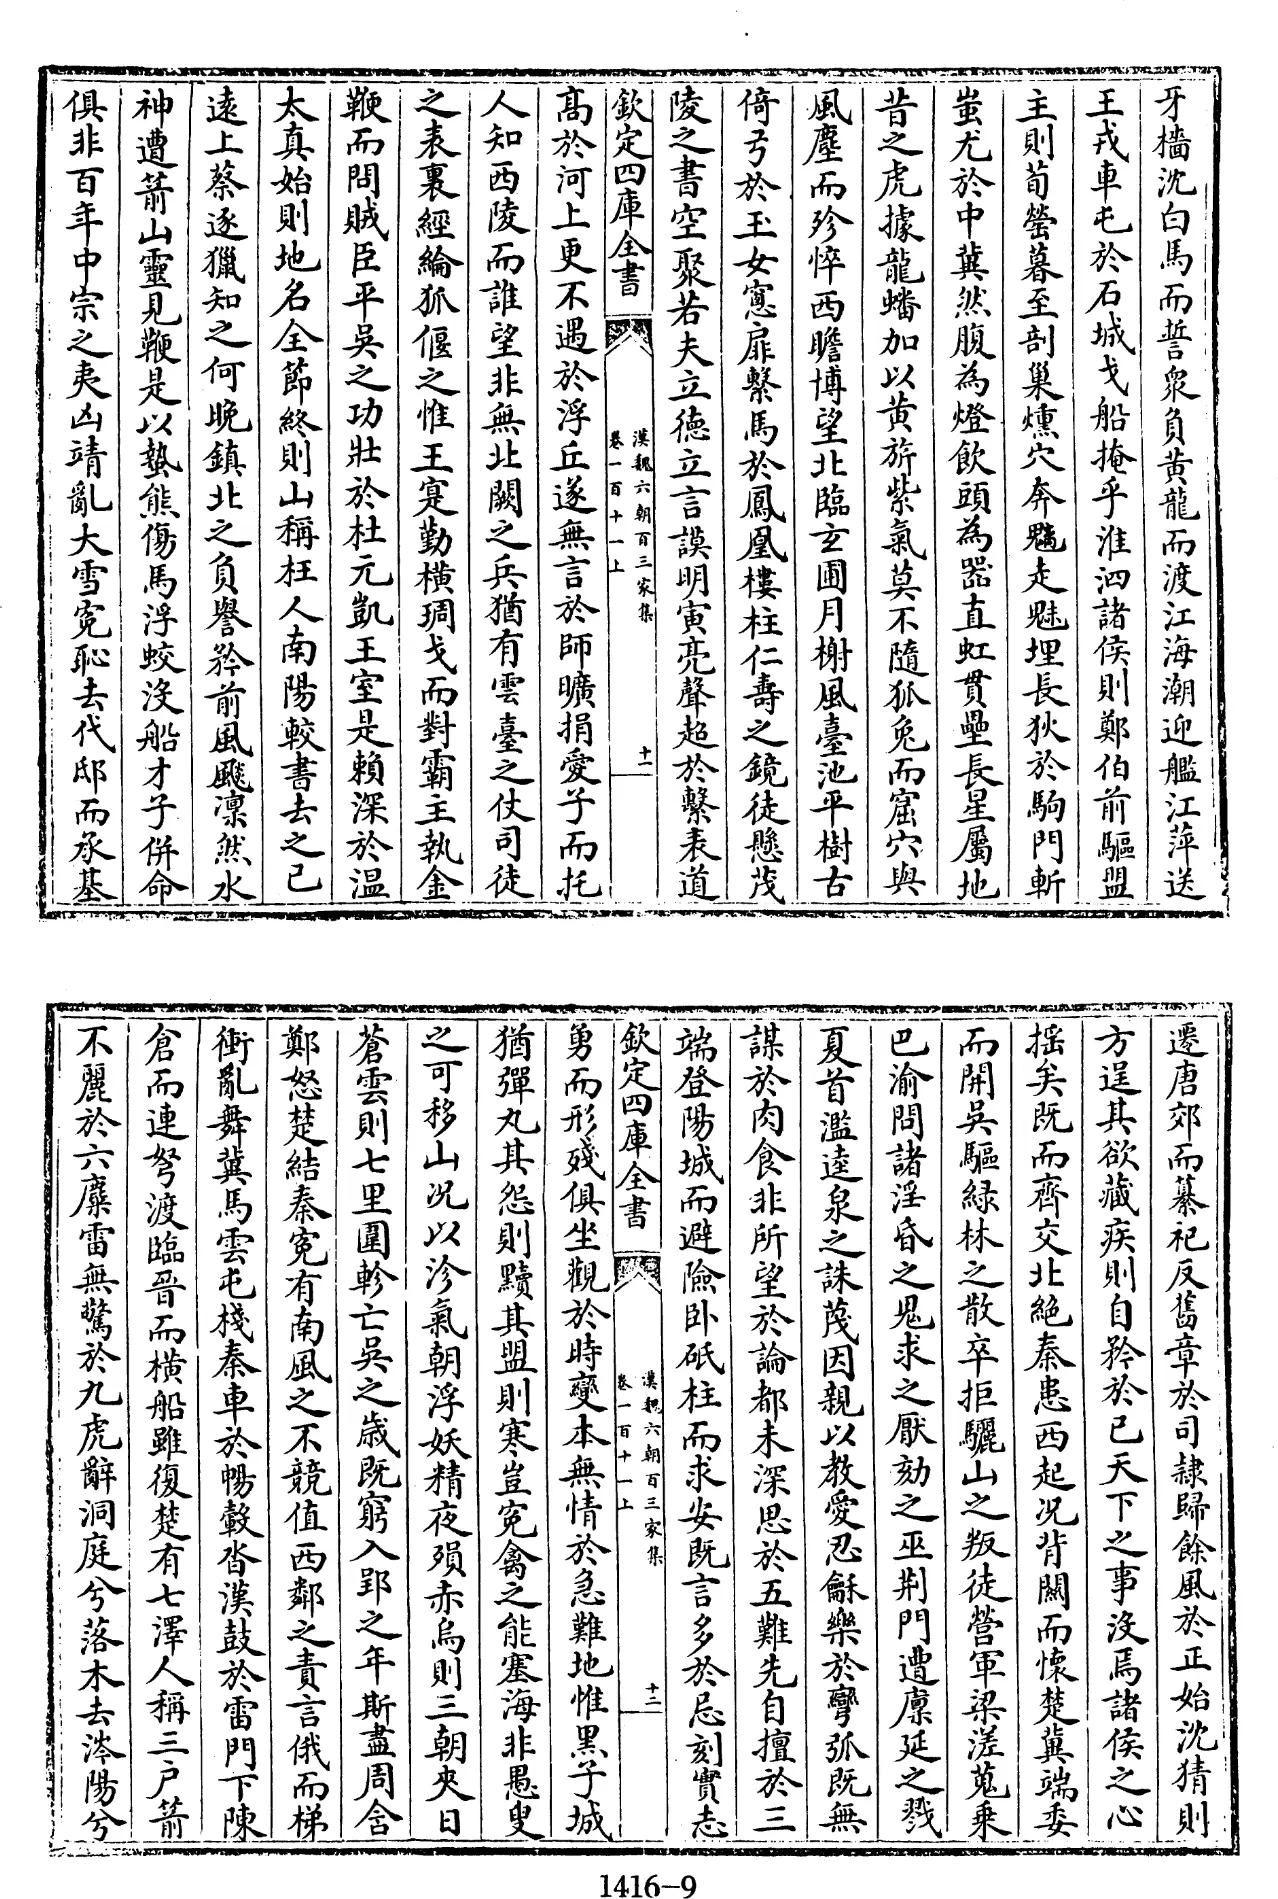 牙檣沈白馬而誓衆負黄龍而渡江海潮迎艦江萍送
王戎車屯於石城戈船掩乎淮泗諸侯則鄭伯前驅盟
主則荀罃暮至剖巢燻穴奔魑走魅埋長狄於駒門斬
蚩尤於中冀然腹為燈飲頭為器直虹貫壘長星屬地
昔之虎據龍蟠加以黄旂紫氣莫不隨狐兔而窟穴與
風塵而殄悴西瞻博望北臨玄圃月榭風臺池平樹古
倚弓於玉女窓扉繫馬於鳳凰樓柱仁壽之鏡徒懸茂
陵之書空聚若夫立德立言謨明寅亮聲超於繫表道
欽定四庫全書
漢魏六朝百三家集
卷一百十一上
十一
高於河上更不遇於浮丘遂無言於師曠捐愛子而托
人知西陵而誰望非無北闕之兵猶有雲臺之仗司徒
之表裏經綸狐偃之惟王寔勤橫琱戈而對霸主執金
鞭而問賊臣平吳之功壯於杜元凱王室是賴深於温
太真始則地名全節終則山稱枉人南陽較書去之已
遠上蔡逐獵知之何晚鎮北之負譽矜前風飈凛然水
神遭箭山靈見鞭是以蟄熊傷馬浮蛟沒船才子併命
俱非百年中宗之夷凶靖亂大雪寃恥去代邸而承基
遷唐郊而纂祀反舊章於司隷歸餘風於正始沈猜則
方逞其欲藏疾則自矜於已天下之事沒焉諸侯之心
揺矣既而齊交北絶秦患西起况背關而懷楚冀端委
而開吳驅緑林之散卒拒驪山之叛徒營軍梁溠蒐乗
巴渝問諸淫昏之鬼求之厭劾之巫荆門遭廪延之戮
夏首濫逵泉之誅蔑因親以教愛忍龢樂於彎弧既無
謀於肉食非所望於論都未深思於五難先自擅於三
端登陽城而避險卧砥柱而求安既言多於忌刻實志
欽定四庫全書
漢魏六朝百三家集
卷一百十一上
十二
勇而形殘俱坐觀於時變本無情於急難地惟黒子城
猶彈丸其怨則黷其盟則寒豈寃禽之能塞海非愚叟
之可移山况以沴氣朝浮妖精夜殞赤烏則三朝夾日
蒼雲則七里圍軫亡吳之歳既窮入郢之年斯盡周含
鄭怒楚結秦寃有南風之不競值西鄰之責言俄而梯
衝亂舞冀馬雲屯棧秦車於暢轂沓漢鼓於雷門下陳
倉而連弩渡臨晋而横船雖復楚有七澤人稱三戸箭
不麗於六麋雷無驚於九虎辭洞庭兮落木去涔陽兮
1416-9